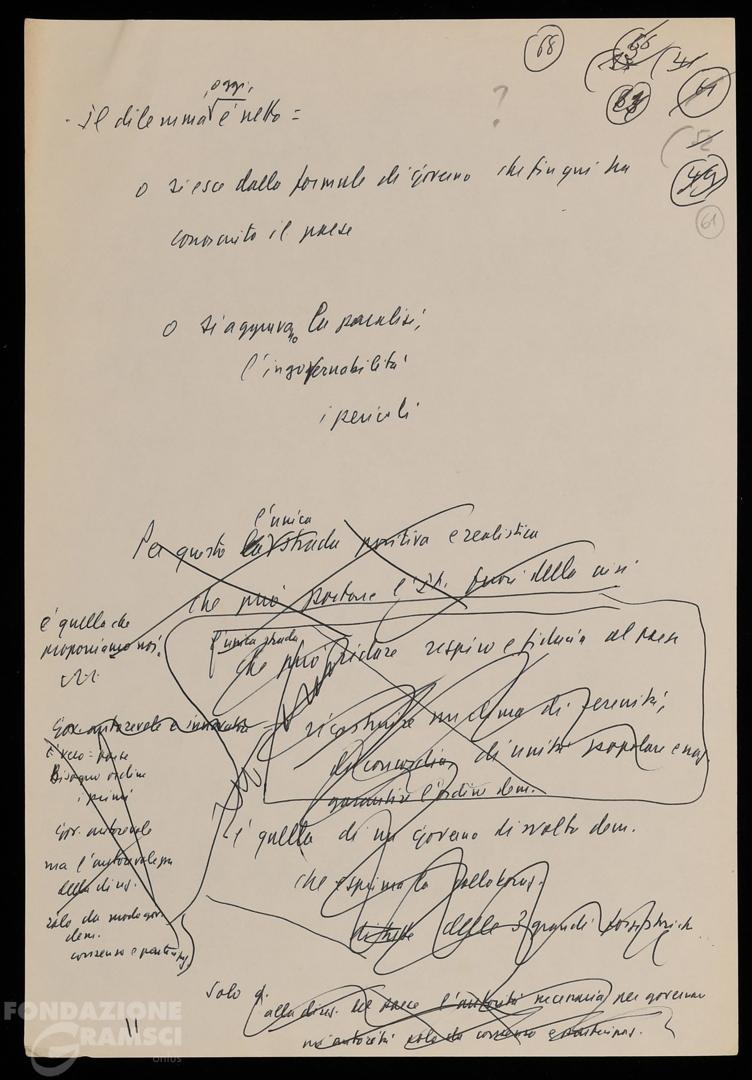 68
66
41
61
49
61
?
oggi
- il dilemma è netto =
o si esce dalle formule di governo che fin qui ha
conosciuto il paese
o si aggrava la paralisi,
l'ingovernabilità
i pericoli
l'unica
Per questo la strada positiva e realistica
che può portare l'It. fuori della crisi
è quella che
proponiamo noi.
l'unica strada
che può ridare respiro e fiducia al paese
ricostruire un clima di serenità,
di concordia, di unità popolare e naz
garantire l'ordine dem.
Gov. autorevole e innovatore
È vero = paese
Bisogno ordine
i primi
Gov. autorevole
ma l'autorevolezza
della direz.
solo da modo gov.
dem.
consenso e partecip
è quella di un governo di svolta dem.
che esprima la collaboraz.
delle 3 grandi forze storiche
Solo
alla direz. del paese l'autorità necessaria per governare
un'autorità solo da consenso e partecipaz.
11
FONDAZIONE
GRAMSCI
onlus